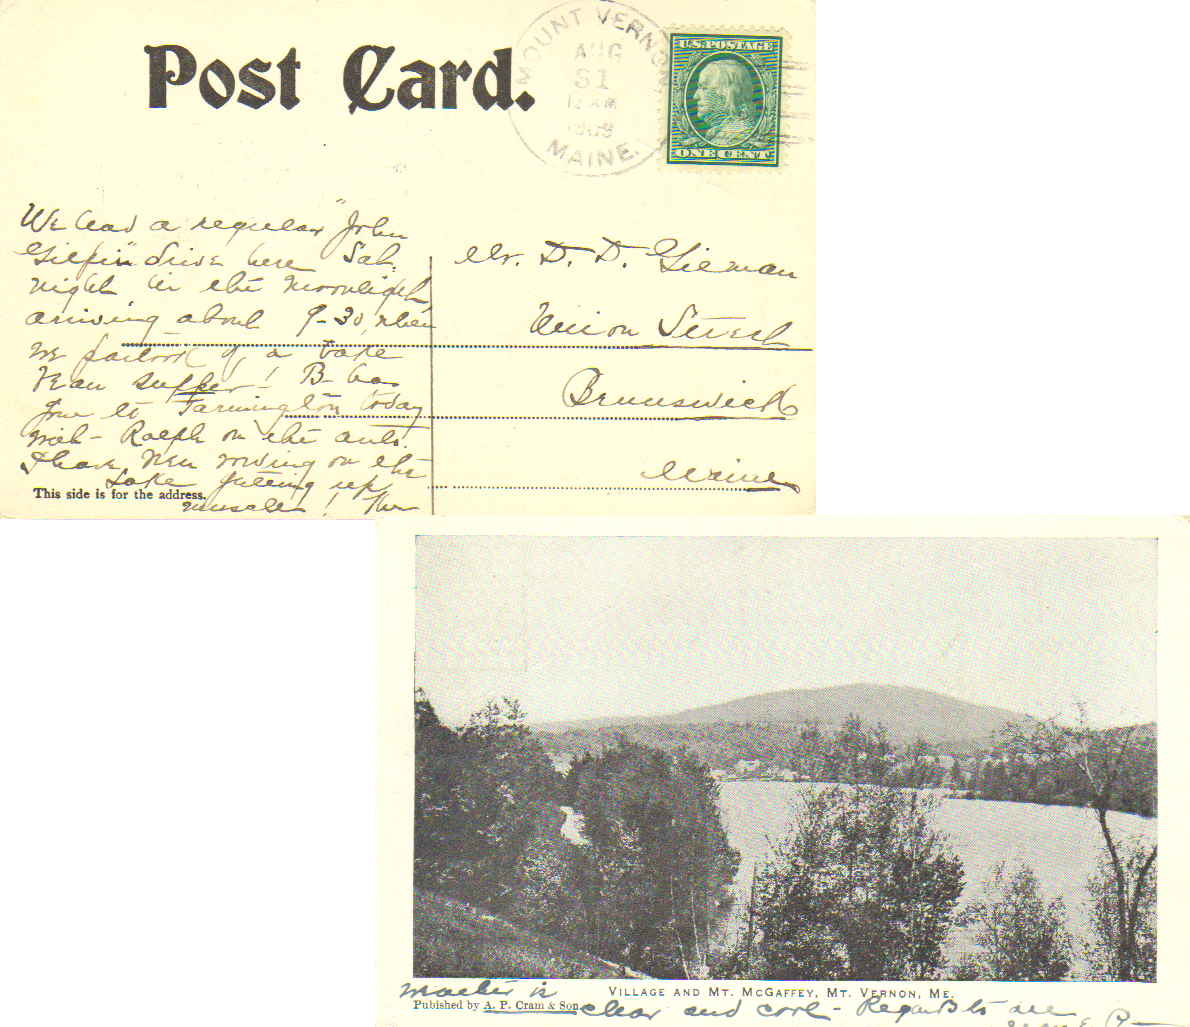 Post Card.
MOUNT VERNON
AUG
31
12 AM
1909
MAINE.
U.S. POSTAGE
ONE CENT
We had a regular "John
Gilpin" drive here Sat.
night in the moonlight,
arriving about 9-30, when
we partook of a bake
bean supper! B- has
gone to Farmington today
with Ralph on the auto.
I have been rowing on the
Lake getting up
muscle! The
Mr. D. D. Gilman
Union Street
Brunswick
Maine
This side is for the address.
VILLAGE AND MT. MCGAFFEY, MT. VERNON, ME.
Pubished by A. P. Cram & Son
is
clear and cool - Regards to